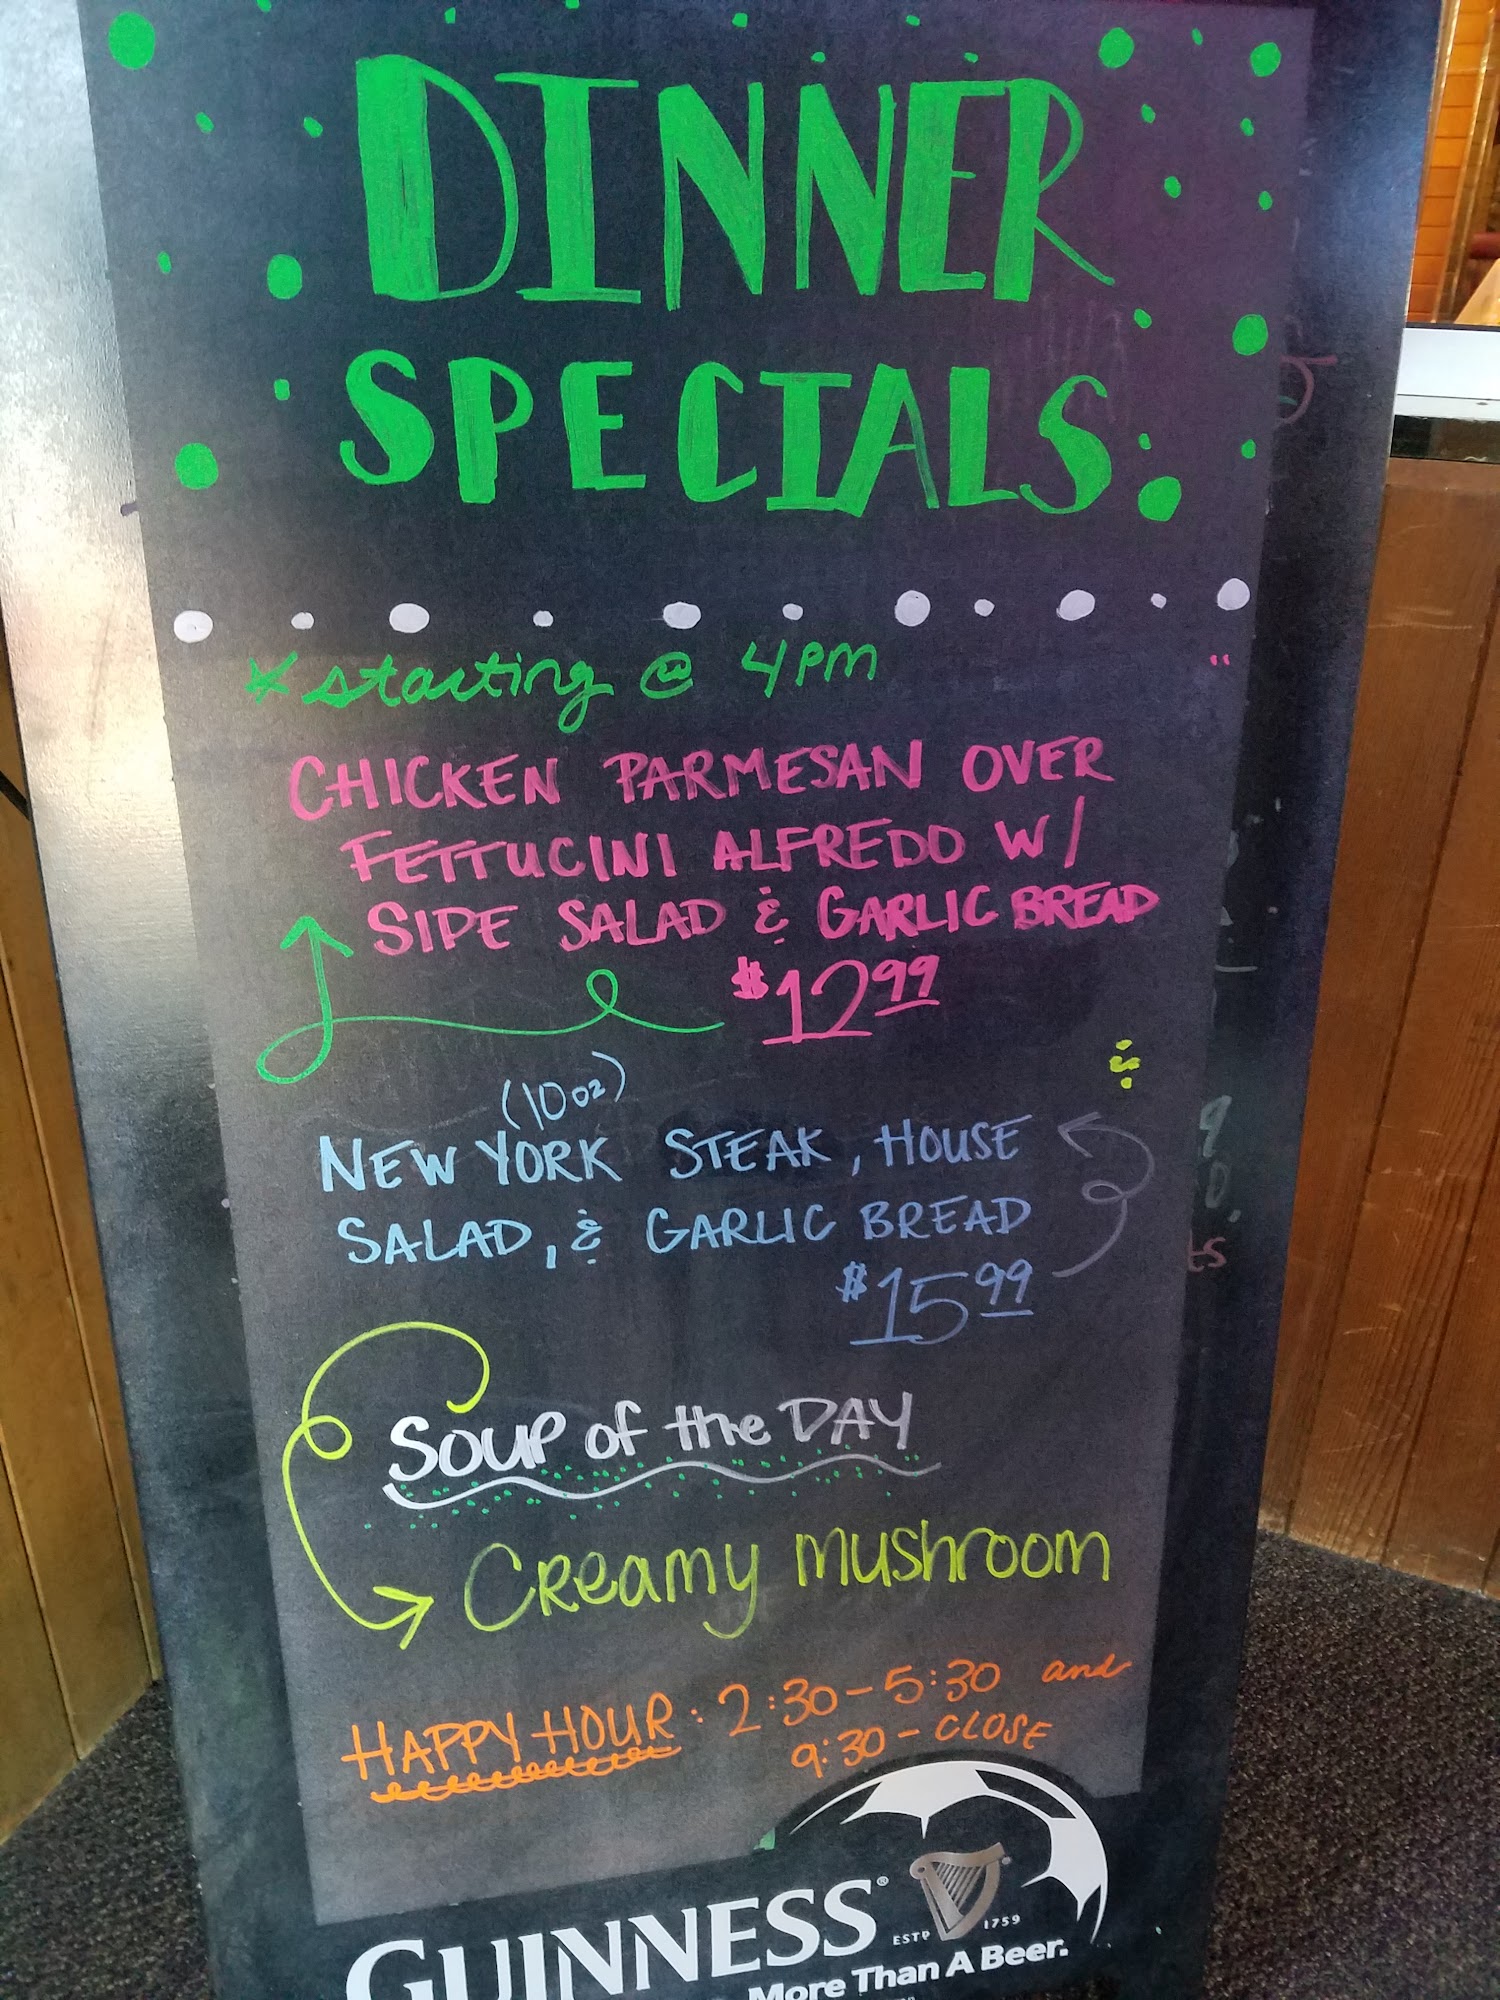 DINNER
SPECIALS
* starting @ 4PM
CHICKEN PARMESAN OVER
FETTUCINI ALFREDO W/
SIDE SALAD & GARLIC BREAD
$12.99
&
(10oz)
NEW YORK STEAK, HOUSE
SALAD, & GARLIC BREAD
$15.99
SOUP of the DAY
Creamy mushroom
HAPPY HOUR: 2:30-5:30 and
9:30-CLOSE
GUINNESS®
ESTD 1759
More Than A Beer.